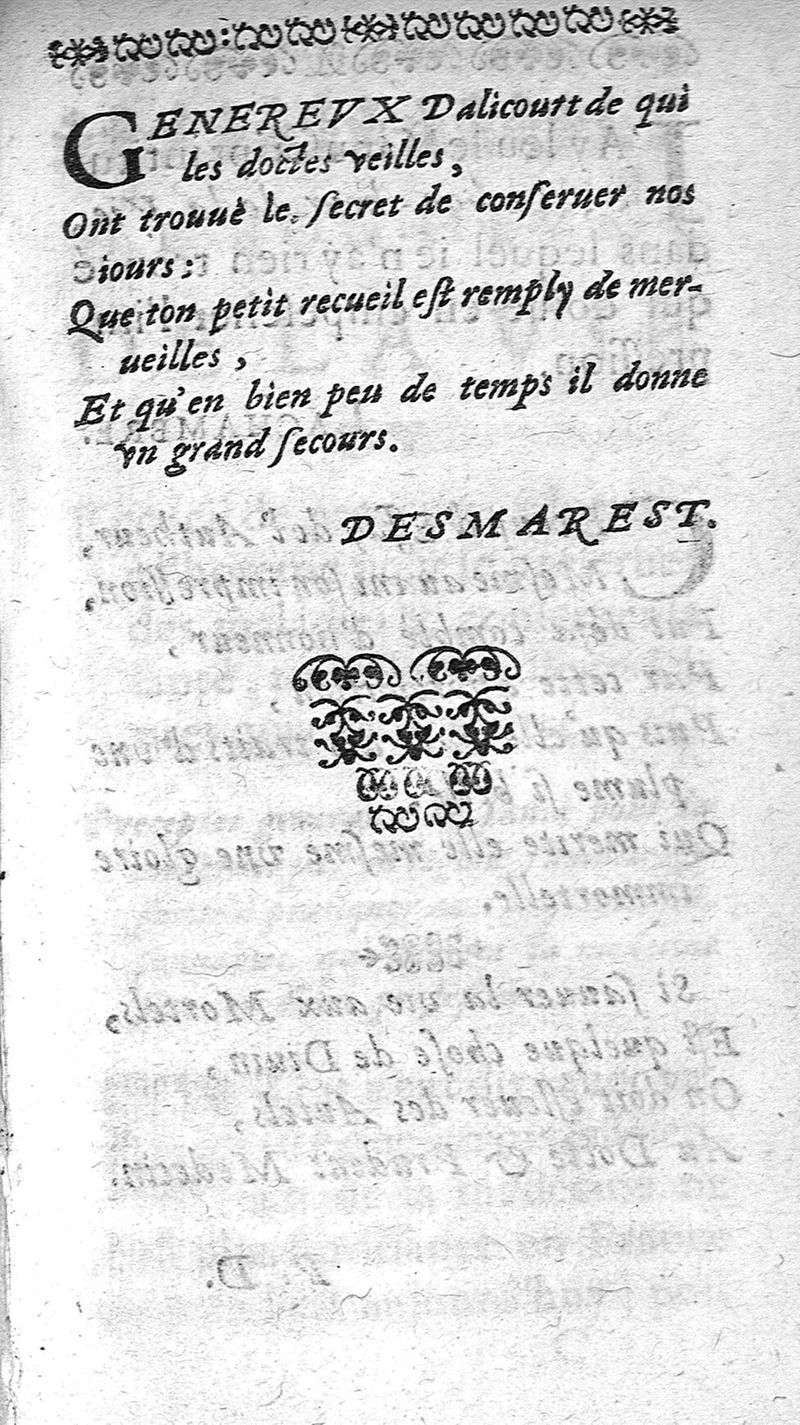 GENEREVX Dalicourt de qui
les doctes veilles,
Ont trouuè le ſecret de conſeruer nos
iours :
Que ton petit recueil eſt remply de mer-
ueilles ,
Et qu'en bien peu de temps il donne
vn grand ſecours.
DESMAREST.